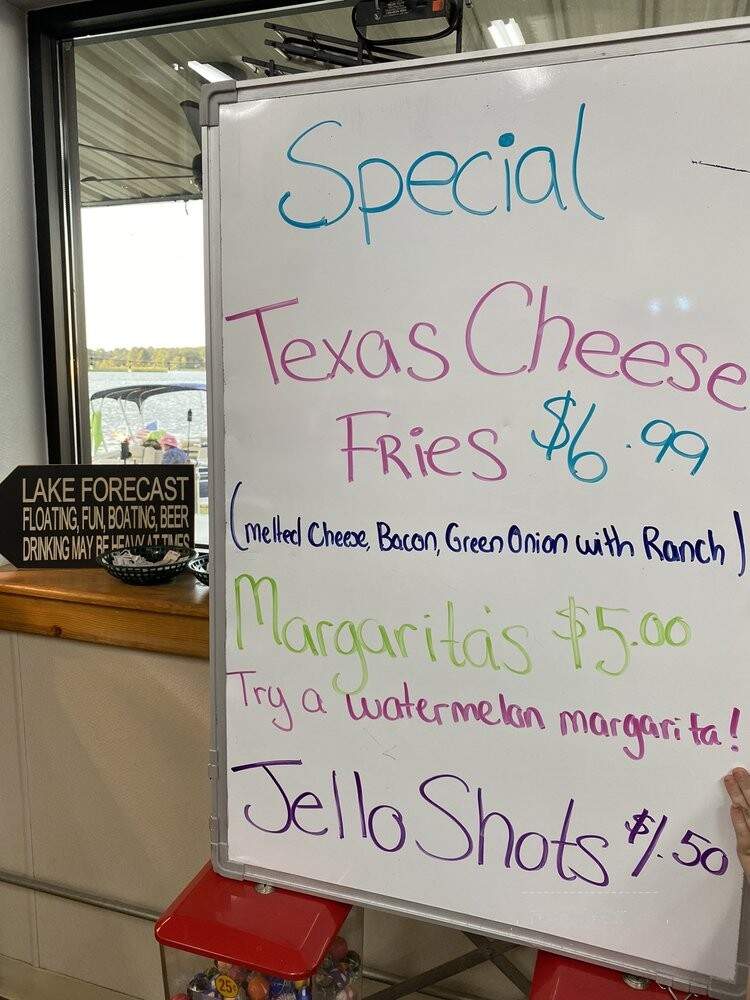 Special
Texas Cheese
Fries $6.99
(melted Cheese, Bacon, Green Onion with Ranch)
Margarita's $5.00
Try a watermelon margarita!
Jello Shots $1.50
LAKE FORECAST
FLOATING, FUN, BOATING, BEER
DRINKING MAY BE HEAVY AT TIMES
25¢